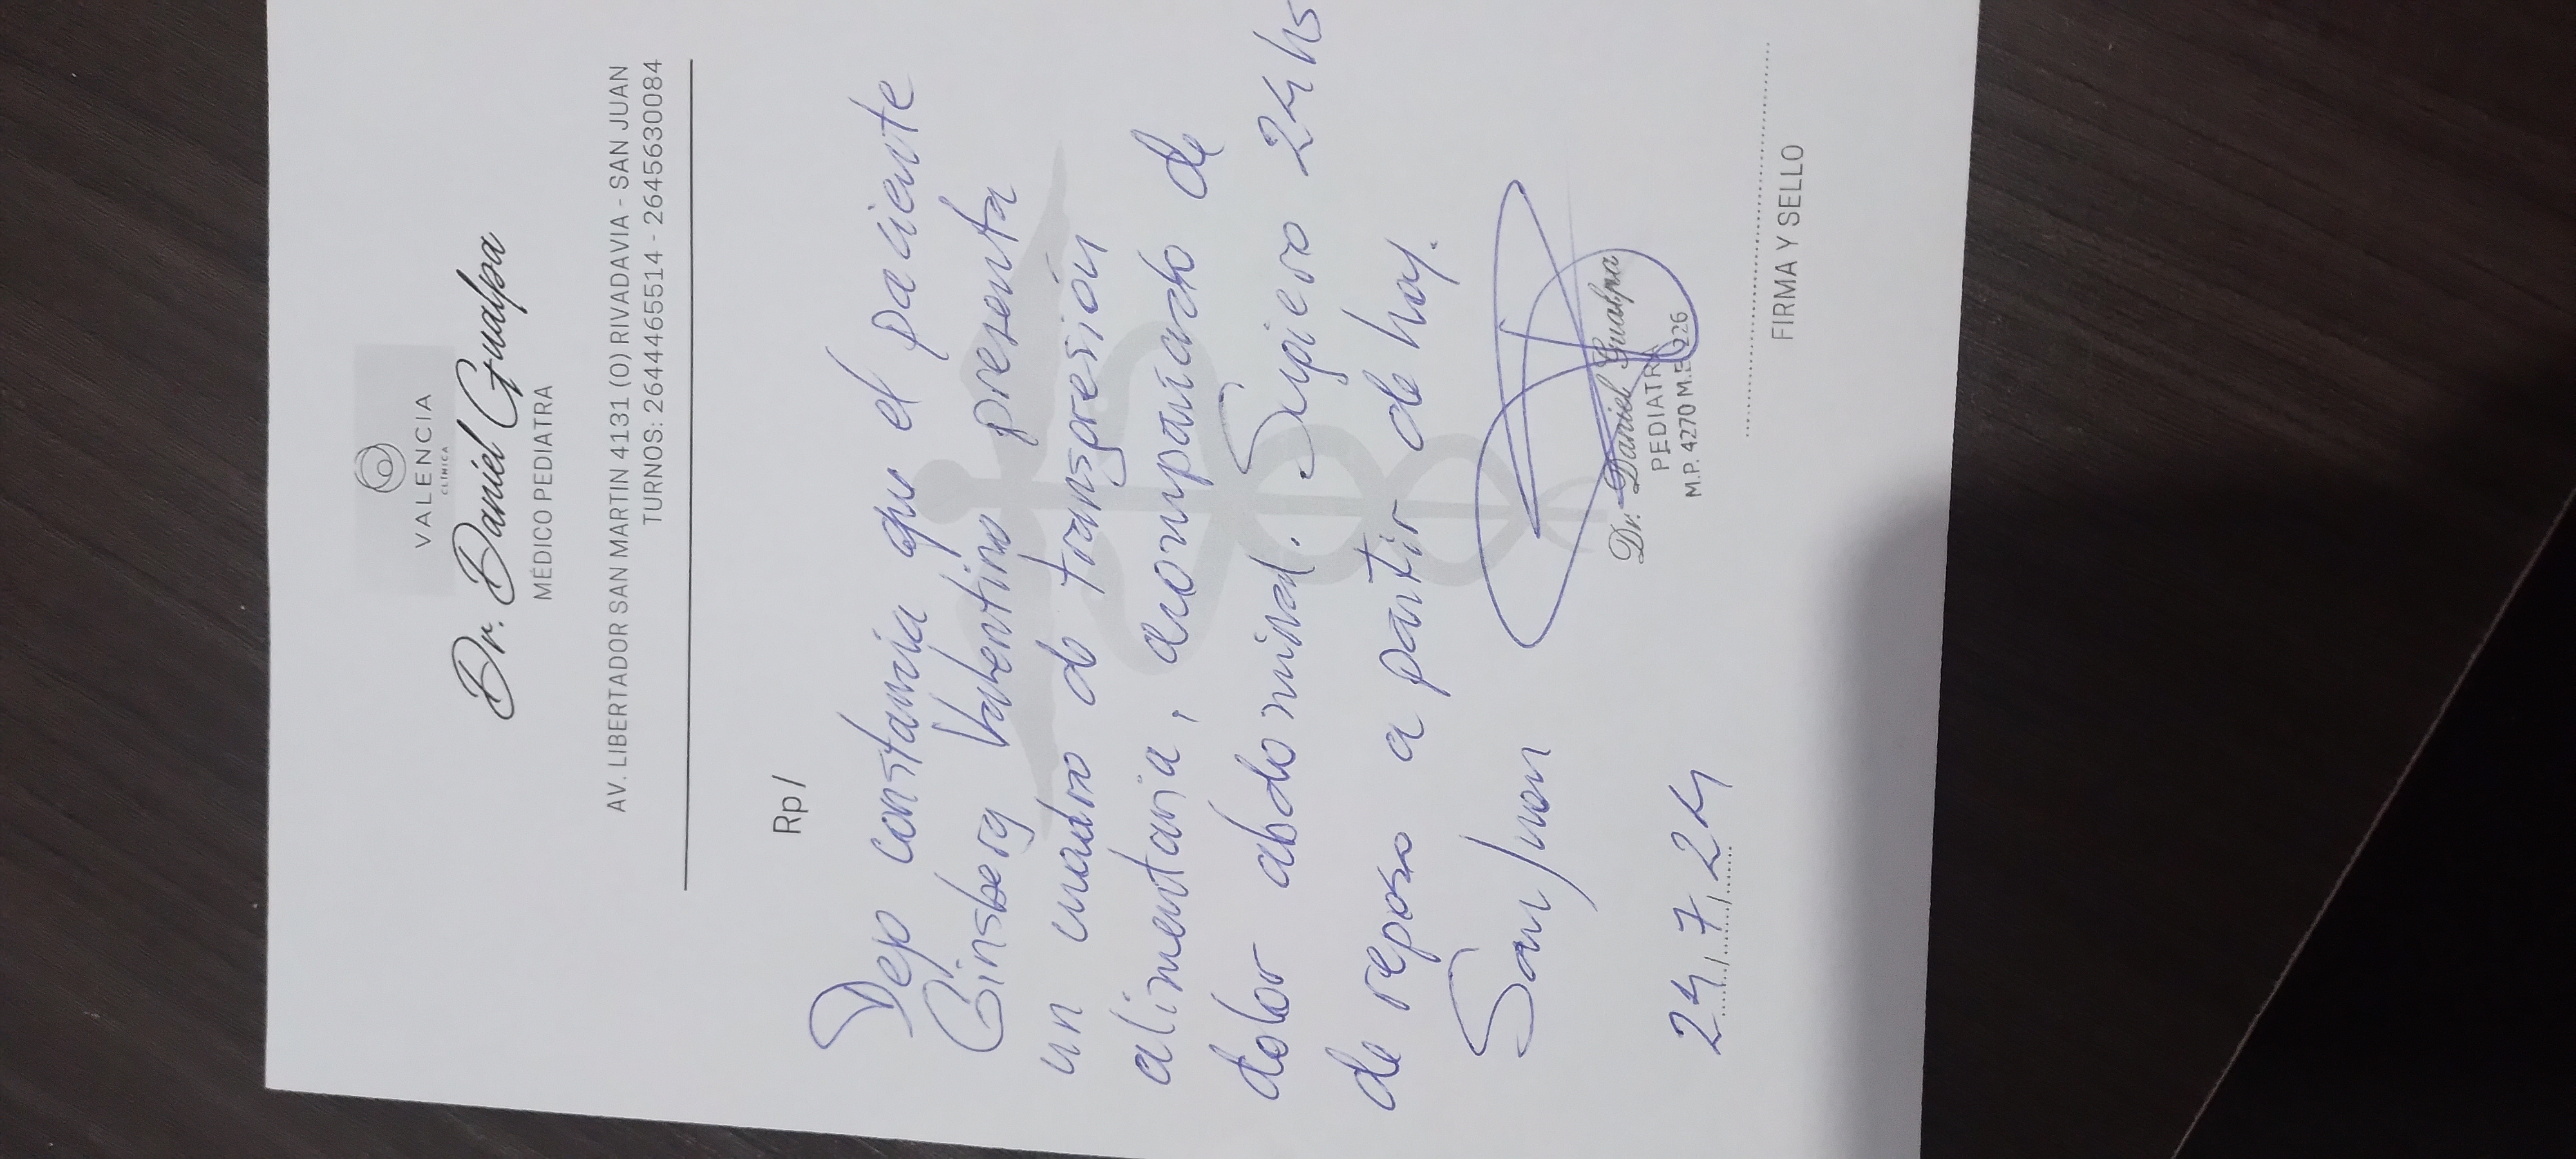 VALENCIA
CLÍNICA
Dr. Daniel Gualpa
MÉDICO PEDIATRA
AV. LIBERTADOR SAN MARTIN 4131 (O) RIVADAVIA - SAN JUAN
TURNOS: 2644465514 - 2645630084
Rp/
Dejo constancia que el paciente
Ginsberg Valentino presenta
un cuadro de transgresión
alimentaria, acompañado de
dolor abdominal. Sugiero 24hs
de reposo a partir de hoy.
San Juan
Dr. Daniel Gualpa
PEDIATRA
M.P. 4270 M.E. 226
24/7/24
FIRMA Y SELLO